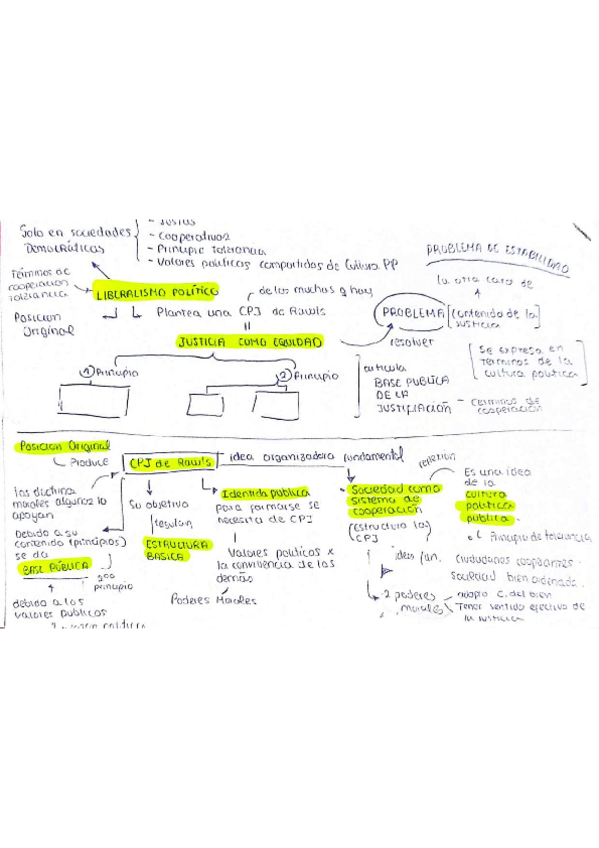 Solo en sociedades
Democráticas
- Justos
- Cooperativos
- Principio tolerancia
- Valores politicos compartidos de Cultura PP
PROBLEMA DE ESTABILIDAD
Términos de
cooperacion
tolerancia
LIBERALISMO POLÍTICO
de las muchas q hay
la otra cara de
Posicion
Original
Plantea una CPJ de Rawls
PROBLEMA
[contenido de la
Justicia]
JUSTICIA COMO EQUIDAD
resolver
① Principio
② Principio
articula
BASE PUBLICA
DE LA
JUSTIFIACIÓN
- Terminos de
cooperación
Se expresa en
terminos de la
cultura politica
Posicion Original
Produce
CPJ de Rawls
idea organizadora fundamental
las doctrina
morales algunos lo
apoyan
Debido a su
contenido (principios)
se da
BASE PÚBLICA
2do
principio
debido a los
valores publicos
Su objetivo
regulan
ESTRUCTURA
BASICA
Identida publica
para formarse se
necesita de CPJ
Valores politicos x
la convivencia de los
demás
Poderes Morales
Sociedad como
sistema de
cooperación
(estructura la)
CPJ
ideas fun.
Ciudadanos cooperantes
sociedad bien ordenada
2 poderes
morales
adopta C. del bien
Tener sentido efectivo de
la justicia
Es una idea
de la
cultura
politica
publica.
Principio de tolerancia